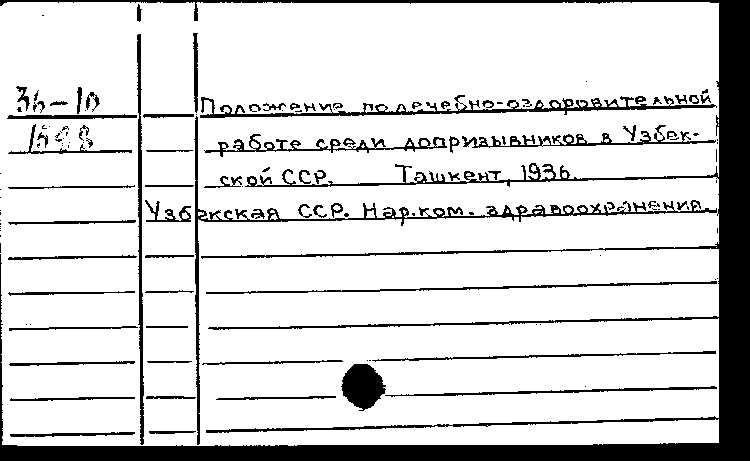 36-10
Положение по лечебно-оздоровительной
1598
работе среди допризывников в Узбек-
ской ССР. Ташкент, 1936.
Узбекская ССР. Нар.ком. здравоохранения.